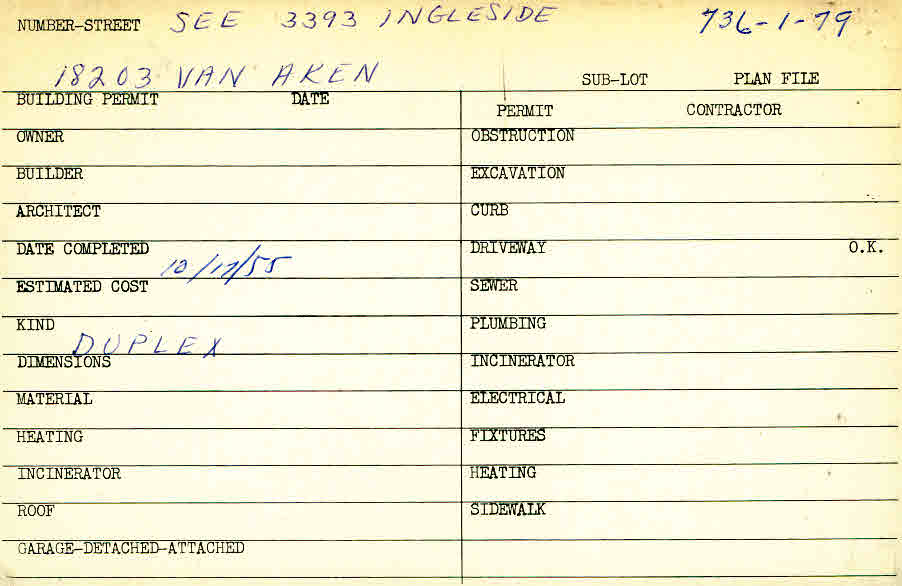 NUMBER-STREET SEE 3393 INGLESIDE 736-1-79
18203 VAN AKEN SUB-LOT PLAN FILE
BUILDING PERMIT DATE PERMIT CONTRACTOR
OWNER OBSTRUCTION
BUILDER EXCAVATION
ARCHITECT CURB
DATE COMPLETED 10/17/55 DRIVEWAY O.K.
ESTIMATED COST SEWER
KIND DUPLEX PLUMBING
DIMENSIONS INCINERATOR
MATERIAL ELECTRICAL
HEATING FIXTURES
INCINERATOR HEATING
ROOF SIDEWALK
GARAGE-DETACHED-ATTACHED